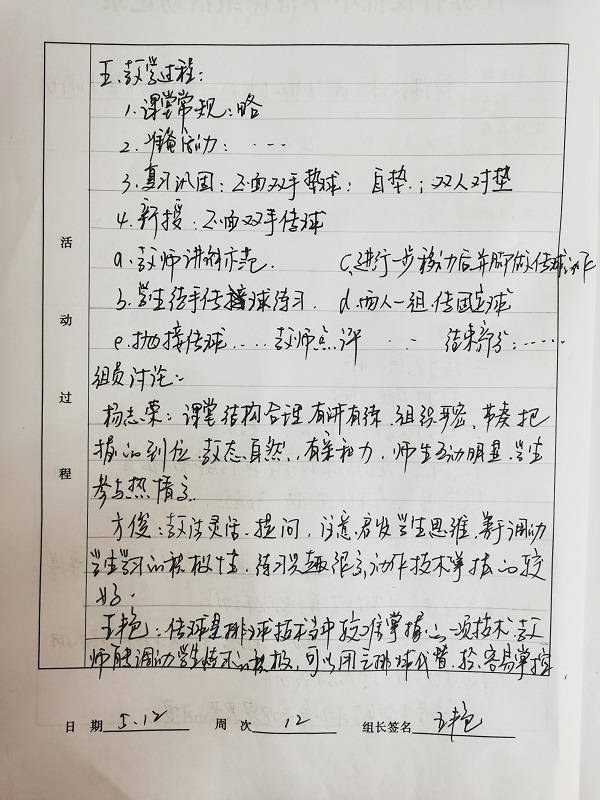 五.教学过程：
1.课堂常规：略
2.准备活动：……
3.复习巩固：正面双手垫球：自垫.；双人对垫
4.新授：正面双手传球
a.教师讲解示范. c.进行一步移动后并脚做传球动作
b.学生徒手传球练习. d.两人一组.传固定球
e.抛接传球….教师点评 … 结束部分：……
组员讨论：
杨志荣：课堂结构合理.有讲有练.组织严密、节奏把
握的到位.教态自然，有亲和力，师生互动明显.学生
参与热情高.
方俊：教法灵活.提问，注意启发学生思维.善于调动
学生学习的积极性.练习兴趣很高，动作技术掌握的较
好.
王艳：传球是排球技术当中较难掌握的一项技术.教
师能调动学生练习的积极，可以用气排球代替.较容易掌控
活动过程
日 期 5.12 周 次 12 组长签名 王艳